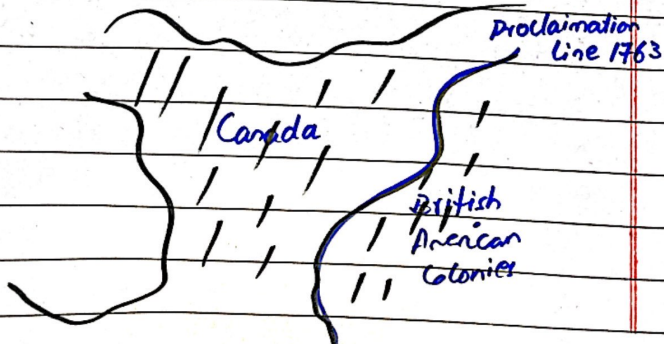 Proclaimation
Line 1763
Canada
British
American
Colonies